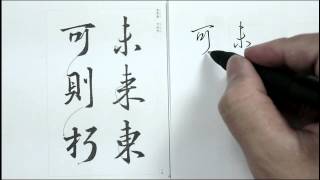 未来東
可則朽
未
可